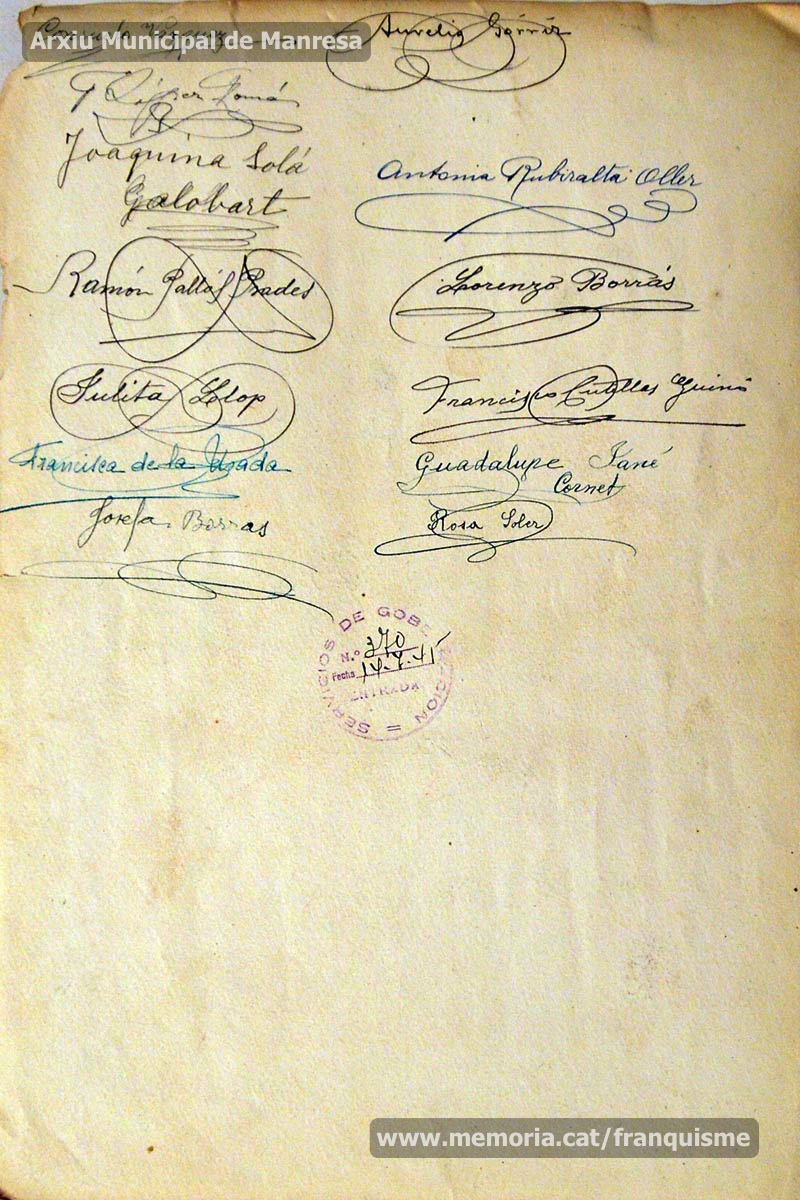 Arxiu Municipal de Manresa
Aurelio Górriz
Joaquina Solá
Galobart
Antonia Rubiralta Oller
Ramón Pallás Prades
Lorenzo Borrás
Julita Llop
Francisco Cutillas
Francisca de la
Guadalupe Jané
Cornet
Josefa Borras
Rosa Soler
SERVICIOS DE GOBERNACION =
N.º 370
Fecha 14-7-41
ENTRADA
www.memoria.cat/franquisme